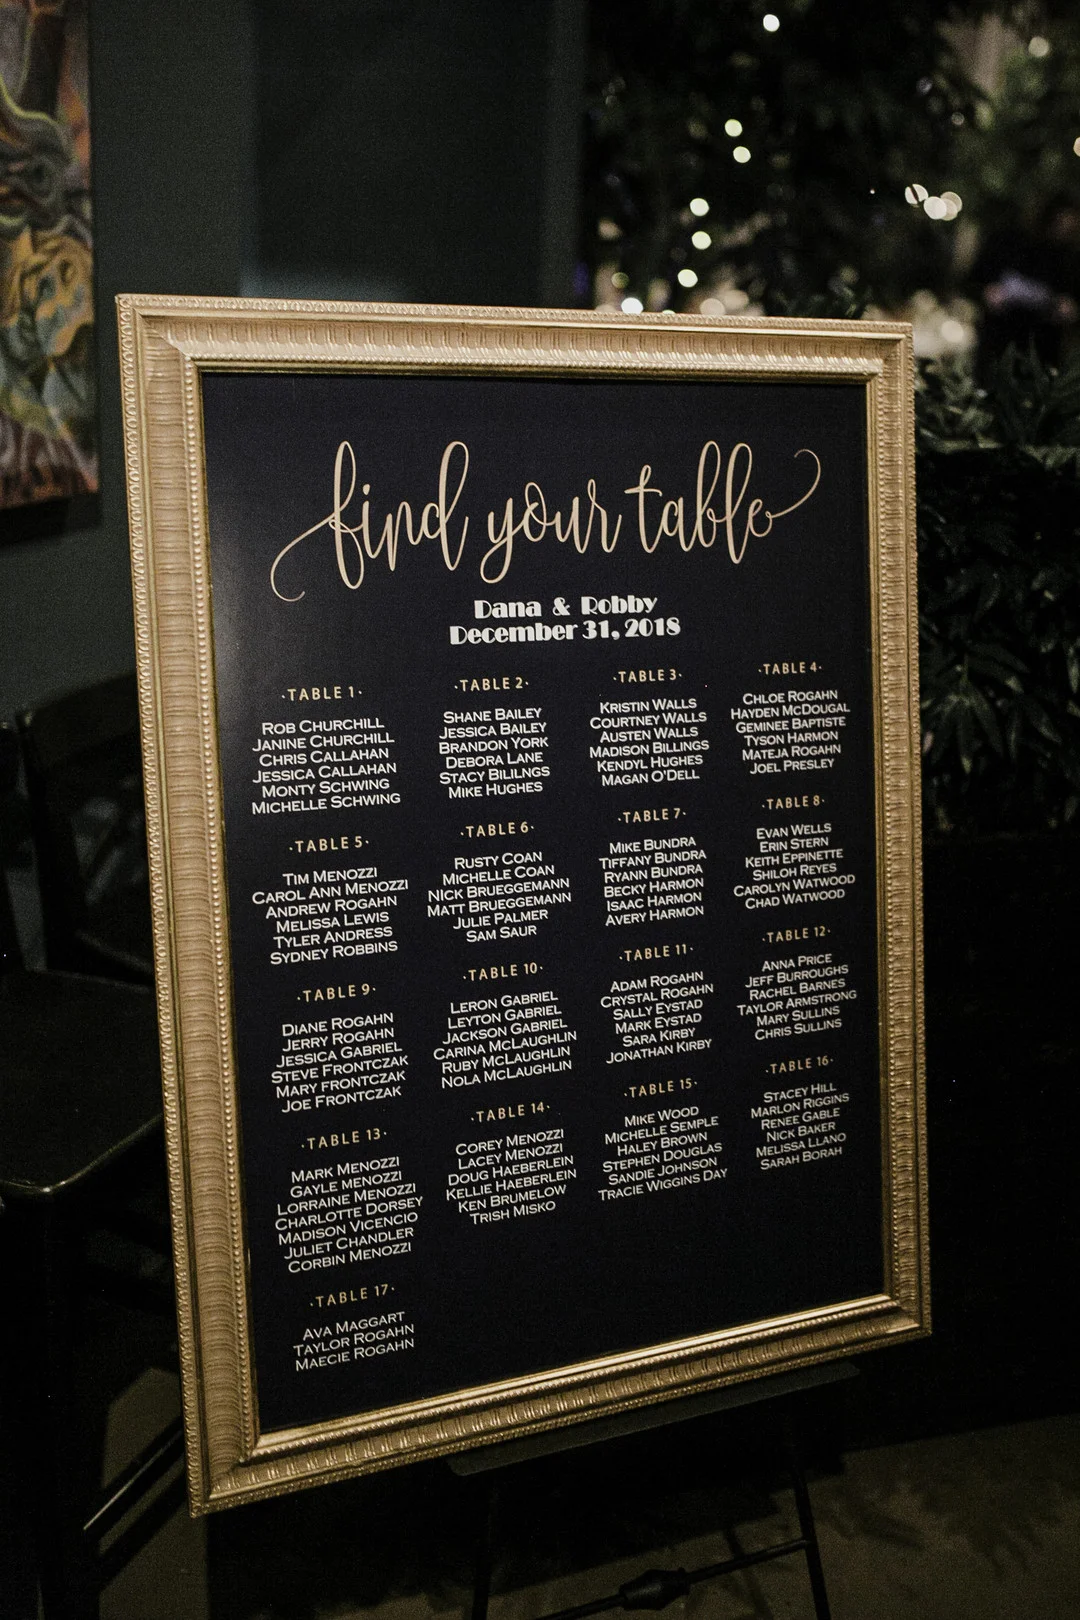 find your table
Dana & Robby
December 31, 2018
·TABLE 1·
ROB CHURCHILL
JANINE CHURCHILL
CHRIS CALLAHAN
JESSICA CALLAHAN
MONTY SCHWING
MICHELLE SCHWING
·TABLE 2·
SHANE BAILEY
JESSICA BAILEY
BRANDON YORK
DEBORA LANE
STACY BILILNGS
MIKE HUGHES
·TABLE 3·
KRISTIN WALLS
COURTNEY WALLS
AUSTEN WALLS
MADISON BILLINGS
KENDYL HUGHES
MAGAN O'DELL
·TABLE 4·
CHLOE ROGAHN
HAYDEN MCDOUGAL
GEMINEE BAPTISTE
TYSON HARMON
MATEJA ROGAHN
JOEL PRESLEY
·TABLE 5·
TIM MENOZZI
CAROL ANN MENOZZI
ANDREW ROGAHN
MELISSA LEWIS
TYLER ANDRESS
SYDNEY ROBBINS
·TABLE 6·
RUSTY COAN
MICHELLE COAN
NICK BRUEGGEMANN
MATT BRUEGGEMANN
JULIE PALMER
SAM SAUR
·TABLE 7·
MIKE BUNDRA
TIFFANY BUNDRA
RYANN BUNDRA
BECKY HARMON
ISAAC HARMON
AVERY HARMON
·TABLE 8·
EVAN WELLS
ERIN STERN
KEITH EPPINETTE
SHILOH REYES
CAROLYN WATWOOD
CHAD WATWOOD
·TABLE 9·
DIANE ROGAHN
JERRY ROGAHN
JESSICA GABRIEL
STEVE FRONTCZAK
MARY FRONTCZAK
JOE FRONTCZAK
·TABLE 10·
LERON GABRIEL
LEYTON GABRIEL
JACKSON GABRIEL
CARINA MCLAUGHLIN
RUBY MCLAUGHLIN
NOLA MCLAUGHLIN
·TABLE 11·
ADAM ROGAHN
CRYSTAL ROGAHN
SALLY EYSTAD
MARK EYSTAD
SARA KIRBY
JONATHAN KIRBY
·TABLE 12·
ANNA PRICE
JEFF BURROUGHS
RACHEL BARNES
TAYLOR ARMSTRONG
MARY SULLINS
CHRIS SULLINS
·TABLE 13·
MARK MENOZZI
GAYLE MENOZZI
LORRAINE MENOZZI
CHARLOTTE DORSEY
MADISON VICENCIO
JULIET CHANDLER
CORBIN MENOZZI
·TABLE 14·
COREY MENOZZI
LACEY MENOZZI
DOUG HAEBERLEIN
KELLIE HAEBERLEIN
KEN BRUMELOW
TRISH MISKO
·TABLE 15·
MIKE WOOD
MICHELLE SEMPLE
HALEY BROWN
STEPHEN DOUGLAS
SANDIE JOHNSON
TRACIE WIGGINS DAY
·TABLE 16·
STACEY HILL
MARLON RIGGINS
RENEE GABLE
NICK BAKER
MELISSA LLANO
SARAH BORAH
·TABLE 17·
AVA MAGGART
TAYLOR ROGAHN
MAECIE ROGAHN